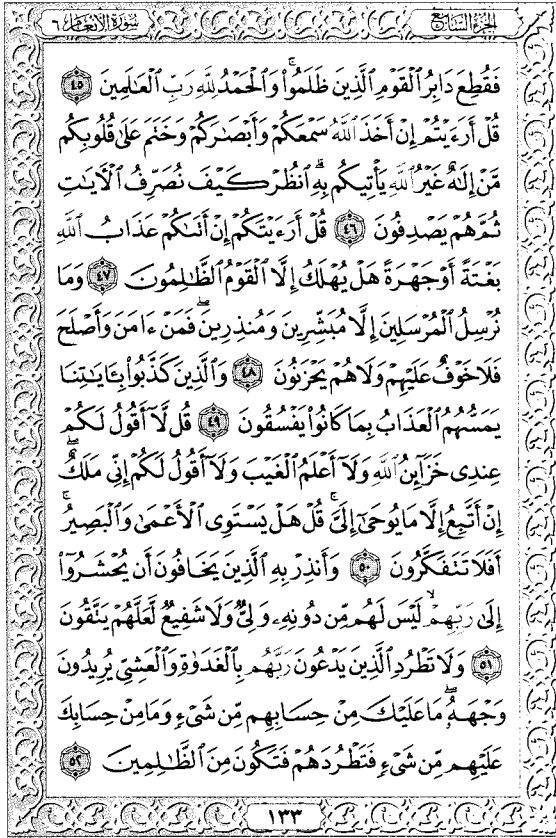 الجزء السابع
سورة الأنعام ٦
فَقُطِعَ دَابِرُ ٱلْقَوْمِ ٱلَّذِينَ ظَلَمُوا۟ ۚ وَٱلْحَمْدُ لِلَّهِ رَبِّ ٱلْعَـٰلَمِينَ ٤٥
قُلْ أَرَءَيْتُمْ إِنْ أَخَذَ ٱللَّهُ سَمْعَكُمْ وَأَبْصَـٰرَكُمْ وَخَتَمَ عَلَىٰ قُلُوبِكُم
مَّنْ إِلَـٰهٌ غَيْرُ ٱللَّهِ يَأْتِيكُم بِهِ ۗ ٱنظُرْ كَيْفَ نُصَرِّفُ ٱلْـَٔايَـٰتِ
ثُمَّ هُمْ يَصْدِفُونَ ٤٦ قُلْ أَرَءَيْتَكُمْ إِنْ أَتَىٰكُمْ عَذَابُ ٱللَّهِ
بَغْتَةً أَوْ جَهْرَةً هَلْ يُهْلَكُ إِلَّا ٱلْقَوْمُ ٱلظَّـٰلِمُونَ ٤٧ وَمَا
نُرْسِلُ ٱلْمُرْسَلِينَ إِلَّا مُبَشِّرِينَ وَمُنذِرِينَ ۖ فَمَنْ ءَامَنَ وَأَصْلَحَ
فَلَا خَوْفٌ عَلَيْهِمْ وَلَا هُمْ يَحْزَنُونَ ٤٨ وَٱلَّذِينَ كَذَّبُوا۟ بِـَٔايَـٰتِنَا
يَمَسُّهُمُ ٱلْعَذَابُ بِمَا كَانُوا۟ يَفْسُقُونَ ٤٩ قُل لَّآ أَقُولُ لَكُمْ
عِندِى خَزَآئِنُ ٱللَّهِ وَلَآ أَعْلَمُ ٱلْغَيْبَ وَلَآ أَقُولُ لَكُمْ إِنِّى مَلَكٌ ۖ
إِنْ أَتَّبِعُ إِلَّا مَا يُوحَىٰٓ إِلَىَّ ۚ قُلْ هَلْ يَسْتَوِى ٱلْأَعْمَىٰ وَٱلْبَصِيرُ ۚ
أَفَلَا تَتَفَكَّرُونَ ٥٠ وَأَنذِرْ بِهِ ٱلَّذِينَ يَخَافُونَ أَن يُحْشَرُوٓا۟
إِلَىٰ رَبِّهِمْ ۙ لَيْسَ لَهُم مِّن دُونِهِۦ وَلِىٌّ وَلَا شَفِيعٌ لَّعَلَّهُمْ يَتَّقُونَ
٥١ وَلَا تَطْرُدِ ٱلَّذِينَ يَدْعُونَ رَبَّهُم بِٱلْغَدَوٰةِ وَٱلْعَشِىِّ يُرِيدُونَ
وَجْهَهُۥ ۖ مَا عَلَيْكَ مِنْ حِسَابِهِم مِّن شَىْءٍ وَمَا مِنْ حِسَابِكَ
عَلَيْهِم مِّن شَىْءٍ فَتَطْرُدَهُمْ فَتَكُونَ مِنَ ٱلظَّـٰلِمِينَ ٥٢
١٣٣